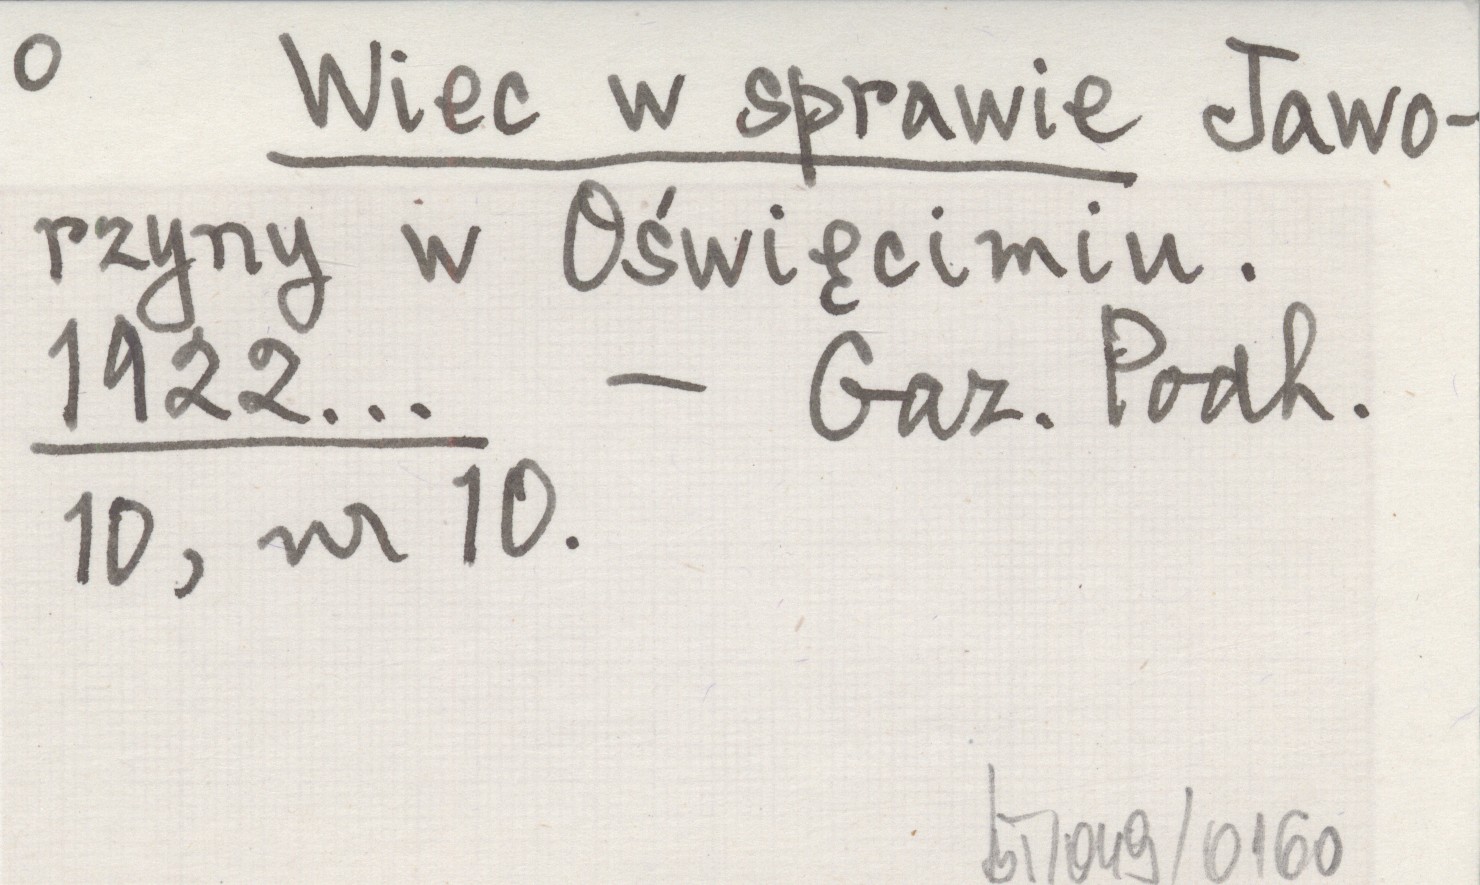 o Wiec w sprawie Jawo-
rzyny w Oświęcimiu.
1922... — Gaz. Podh.
10, nr 10.